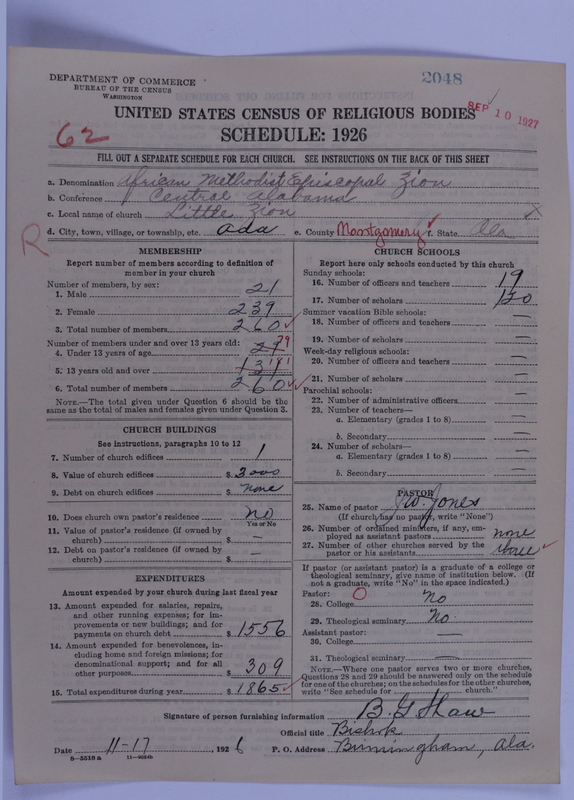 DEPARTMENT OF COMMERCE
BUREAU OF THE CENSUS
WASHINGTON
2048
SEP 10 1927
UNITED STATES CENSUS OF RELIGIOUS BODIES
62
SCHEDULE: 1926
FILL OUT A SEPARATE SCHEDULE FOR EACH CHURCH. SEE INSTRUCTIONS ON THE BACK OF THIS SHEET
a. Denomination African Methodist Episcopal Zion
b. Conference Central Alabama
c. Local name of church Little Zion
d. City, town, village, or township, etc. Ada e. County Montgomery f. State Ala
R
MEMBERSHIP
Report number of members according to definition of
member in your church
Number of members, by sex:
1. Male 21
2. Female 239
3. Total number of members 260
Number of members under and over 13 years old:
4. Under 13 years of age 79
5. 13 years old and over 181
6. Total number of members 260
NOTE.—The total given under Question 6 should be the
same as the total of males and females given under Question 3.
CHURCH BUILDINGS
See instructions, paragraphs 10 to 12
7. Number of church edifices 1
8. Value of church edifices $ 3000
9. Debt on church edifices $ none
10. Does church own pastor's residence no
Yes or No
11. Value of pastor's residence (if owned by
church) $ —
12. Debt on pastor's residence (if owned by
church) $ —
EXPENDITURES
Amount expended by your church during last fiscal year
13. Amount expended for salaries, repairs,
and other running expenses; for im-
provements or new buildings; and for
payments on church debt $ 1556
14. Amount expended for benevolences, in-
cluding home and foreign missions; for
denominational support; and for all
other purposes $ 309
15. Total expenditures during year $ 1865
CHURCH SCHOOLS
Report here only schools conducted by this church
Sunday schools:
16. Number of officers and teachers 19
17. Number of scholars 120
Summer vacation Bible schools:
18. Number of officers and teachers —
19. Number of scholars —
Week-day religious schools:
20. Number of officers and teachers —
21. Number of scholars —
Parochial schools:
22. Number of administrative officers —
23. Number of teachers—
a. Elementary (grades 1 to 8) —
b. Secondary —
24. Number of scholars—
a. Elementary (grades 1 to 8) —
b. Secondary —
PASTOR
25. Name of pastor Jones
(If church has no pastor, write "None")
26. Number of ordained ministers, if any, em-
ployed as assistant pastors none
27. Number of other churches served by the
pastor or his assistants
If pastor (or assistant pastor) is a graduate of a college or
theological seminary, give name of institution below. (If
not a graduate, write "No" in the space indicated.)
Pastor:
28. College No
29. Theological seminary No
Assistant pastor:
30. College —
31. Theological seminary —
NOTE.—Where one pastor serves two or more churches,
Questions 28 and 29 should be answered only on the schedule
for one of the churches; on the schedules for the other churches,
write "See schedule for church."
Signature of person furnishing information B. G. Shaw
Official title Bishop
Date 11-17, 1926 P. O. Address Birmingham, Ala.
8-5519a 11-9054b